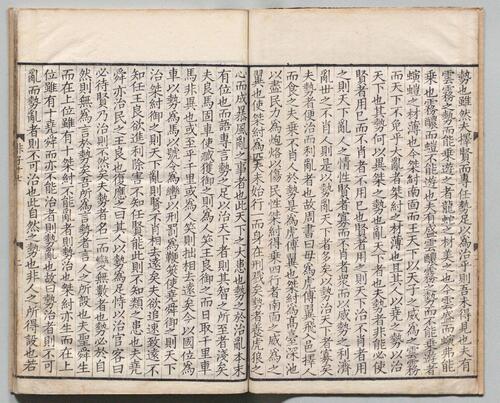 勢也雖然夫擇賢而專任勢足以為治乎則吾未得見也夫有
雲霧之勢而能乘遊之者龍蛇之材美也今雲盛而螾弗能
乘也霧醲而螘不能遊也夫有盛雲醲霧之勢而不能乘遊者
螾螘之材薄也今桀紂南面而王天下以天子之威為之雲霧
而天下不免乎大亂者桀紂之材薄也且其人以堯之勢以治
天下也其勢何以異桀之勢也亂天下者也夫勢者非能必使
賢者用已而不肖者不用已也賢者用之則天下治不肖者用
之則天下亂人之情性賢者寡而不肖者衆而以威勢之利濟
亂世之不肖人則是以勢亂天下者多矣以勢治天下者寡矣
夫勢者便治而利亂者也故周書曰毋為虎傅翼飛入邑擇人
而食之夫乘不肖人於勢是為虎傅翼也桀紂為高臺深池
以盡民力為炮烙以傷民性桀紂得乘四行者南面之威為之
翼也使桀紂為匹夫未始行一而身在刑戮矣勢者養虎狼之
心而成暴風亂之事者也此天下之大患也勢之於治亂本末
有位也而語專言勢之足以治天下者則其智之所至者淺矣
夫良馬固車使臧獲御之則為人笑王良御之而日取千里車
馬非異也或至乎千里或為人笑則巧拙相去遠矣今以國位為
車以勢為馬以號令為轡以刑罰為鞭筴使堯舜御之則天下
治桀紂御之則天下亂則賢不肖相去遠矣夫欲追速致遠不
知任王良欲進利除害不知任賢能此則不知類之患也夫堯
舜亦治民之王良也復應之曰其人以勢為足恃以治官客曰
必待賢乃治則不然矣夫勢者名一而變無數者也勢必於自
然則無為言於勢矣吾所為言勢者言人之所設也夫聖舜生
而在上位雖有十桀紂不能亂者則勢治也桀紂亦生而在上
位雖有十堯舜而亦不能治者則勢亂也故曰勢治者則不可
亂而勢亂者則不可治也此自然之勢也非人之所得設也若